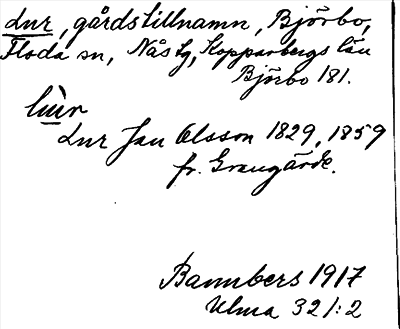 Lur, gårdstillnamn, Björbo,
Floda sn, Nås tg, Kopparbergs län
Björbo 181.
lùr
Lur Jan Olsson 1829, 1859
fr. Grangärde.
Bannbers 1917
Ulma 321:2